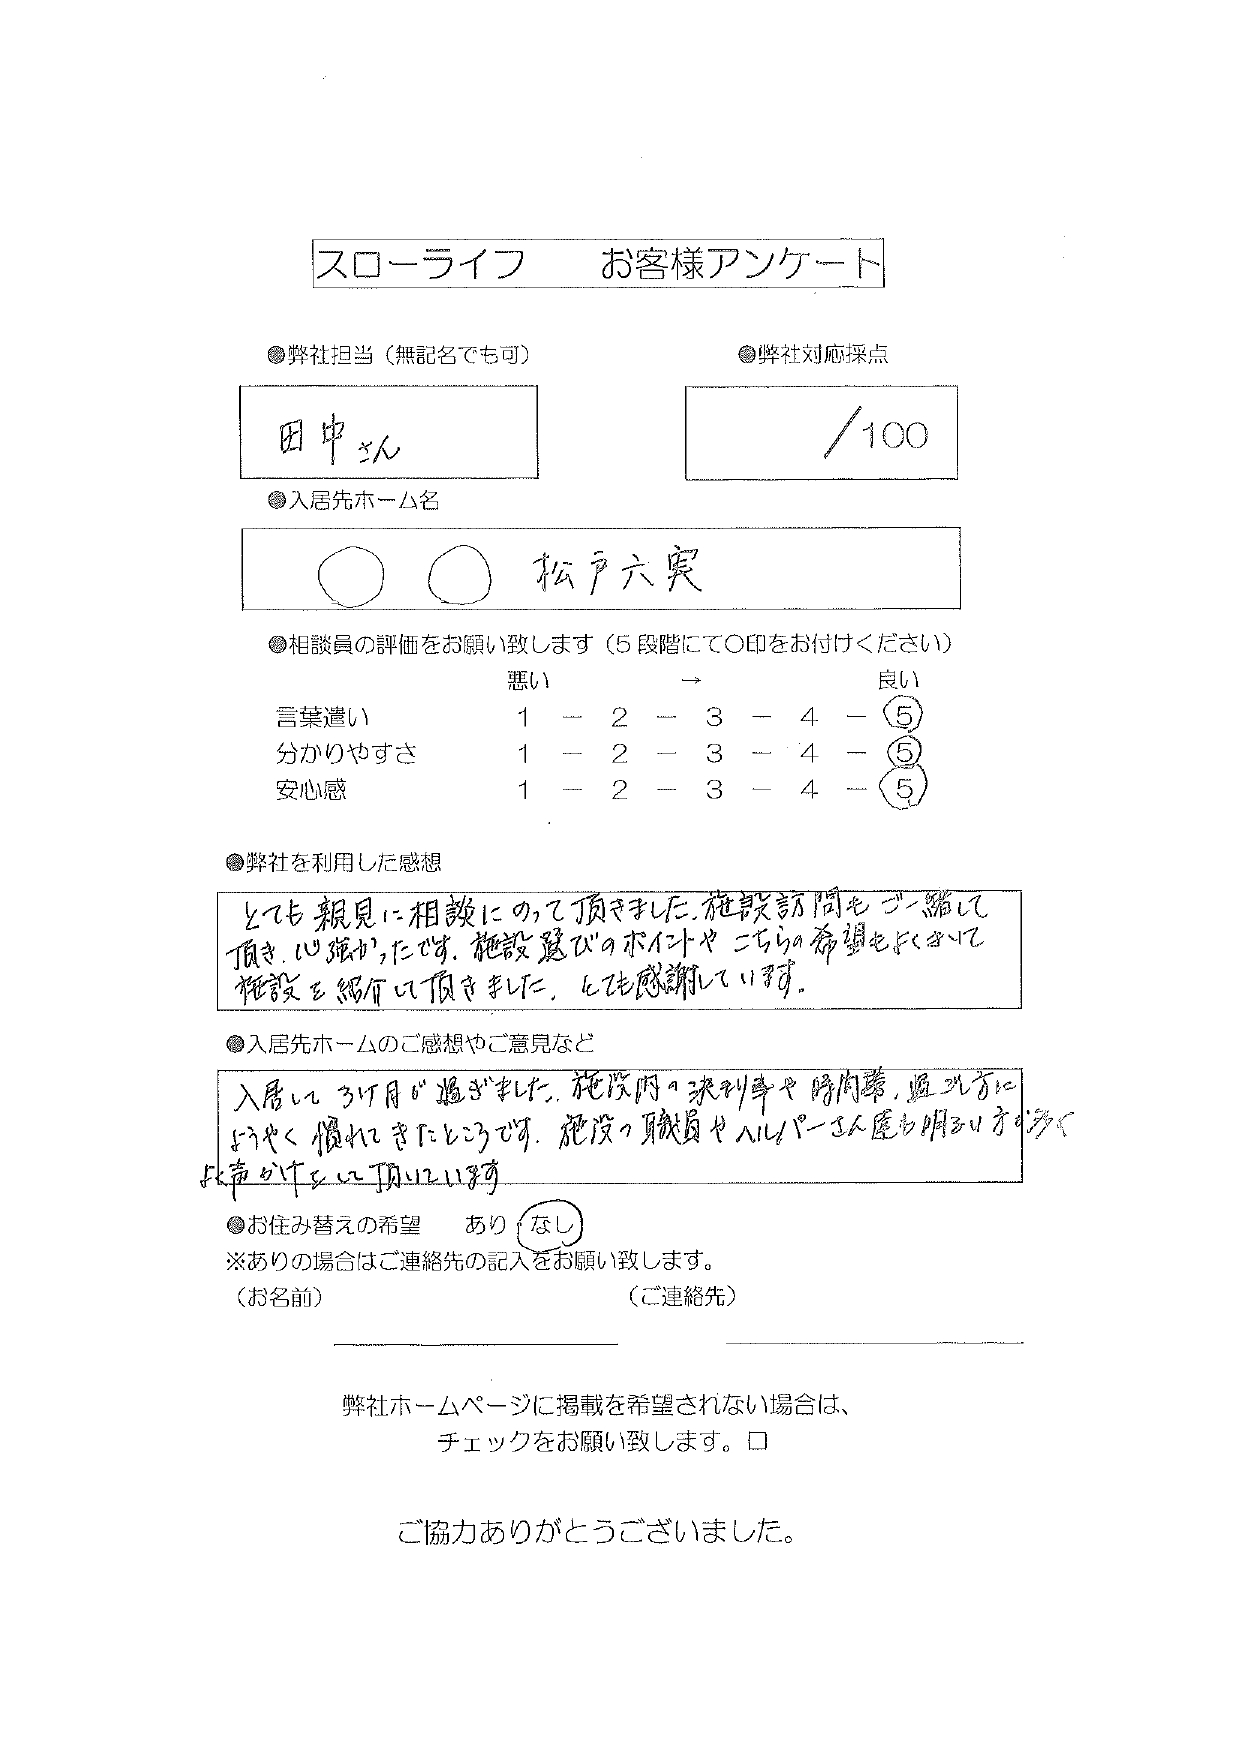 スローライフ　お客様アンケート
●弊社担当（無記名でも可）　●弊社対応採点
田中さん　/100
●入居先ホーム名
○○松戸六実
●相談員の評価をお願い致します（5段階にて○印をお付けください）
悪い　→　良い
言葉遣い　1 － 2 － 3 － 4 － 5
分かりやすさ　1 － 2 － 3 － 4 － 5
安心感　1 － 2 － 3 － 4 － 5
●弊社を利用した感想
とても親見に相談にのって頂きました。施設訪問もご一緒して
頂き、心強かったです。施設選びのポイントや こちらの希望もよくきいて
施設を紹介して頂きました。とても感謝しています。
●入居先ホームのご感想やご意見など
入居して 3ケ月が過ぎました。施設内の決り事や時間帯、過ごし方に
ようやく慣れてきたところです。施設の職員やヘルパーさん達も明るい方が多く
よく声かけをして頂いています
●お住み替えの希望　あり・なし
※ありの場合はご連絡先の記入をお願い致します。
（お名前）　（ご連絡先）
弊社ホームページに掲載を希望されない場合は、
チェックをお願い致します。□
ご協力ありがとうございました。